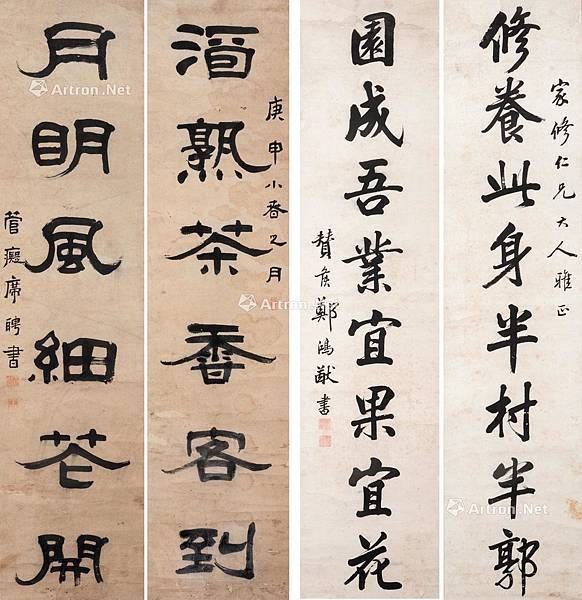 家修仁兄大人雅正
修養此身半村半郭
園成吾業宜果宜花
贊侯鄭鴻猷書
庚申小春之月
酒熟茶香客到
月眀風細花開
管癡席聘書
Artron.Net
Artron.Net
Artron.Net
Artron.Net